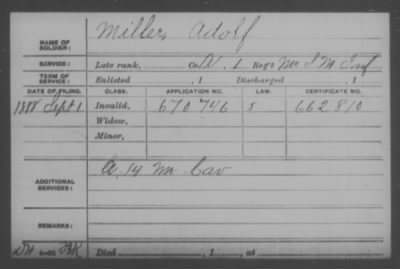 NAME OF SOLDIER: Miller, Adolf
SERVICE: Late rank, Co. A. 1 Reg't Mo S M Inf
TERM OF SERVICE: Enlisted , 1 Discharged , 1
DATE OF FILING. CLASS. APPLICATION NO. LAW. CERTIFICATE NO.
1888 Sept 1 Invalid, 670 746 5 662 810
Widow,
Minor,
ADDITIONAL SERVICES: A. 14 M Cav
REMARKS:
Died , 1 , at